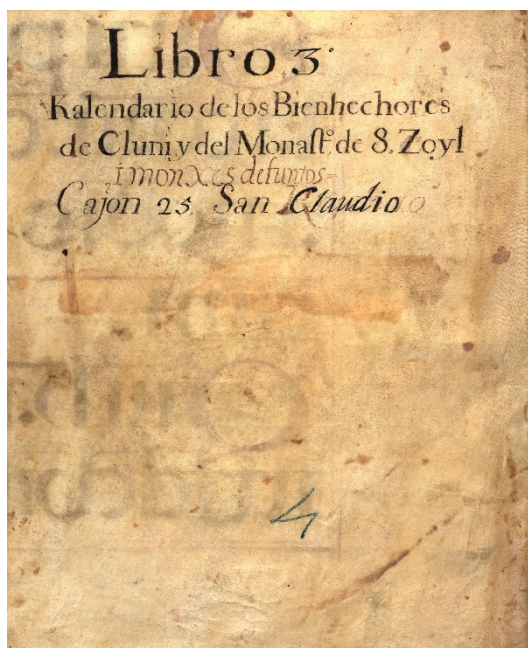 Libro 3º
Kalendario de los Bienhechores
de Cluni y del Monastº. de S. Zoyl
i monxes defuntos=
Cajon 25. San Claudio
4